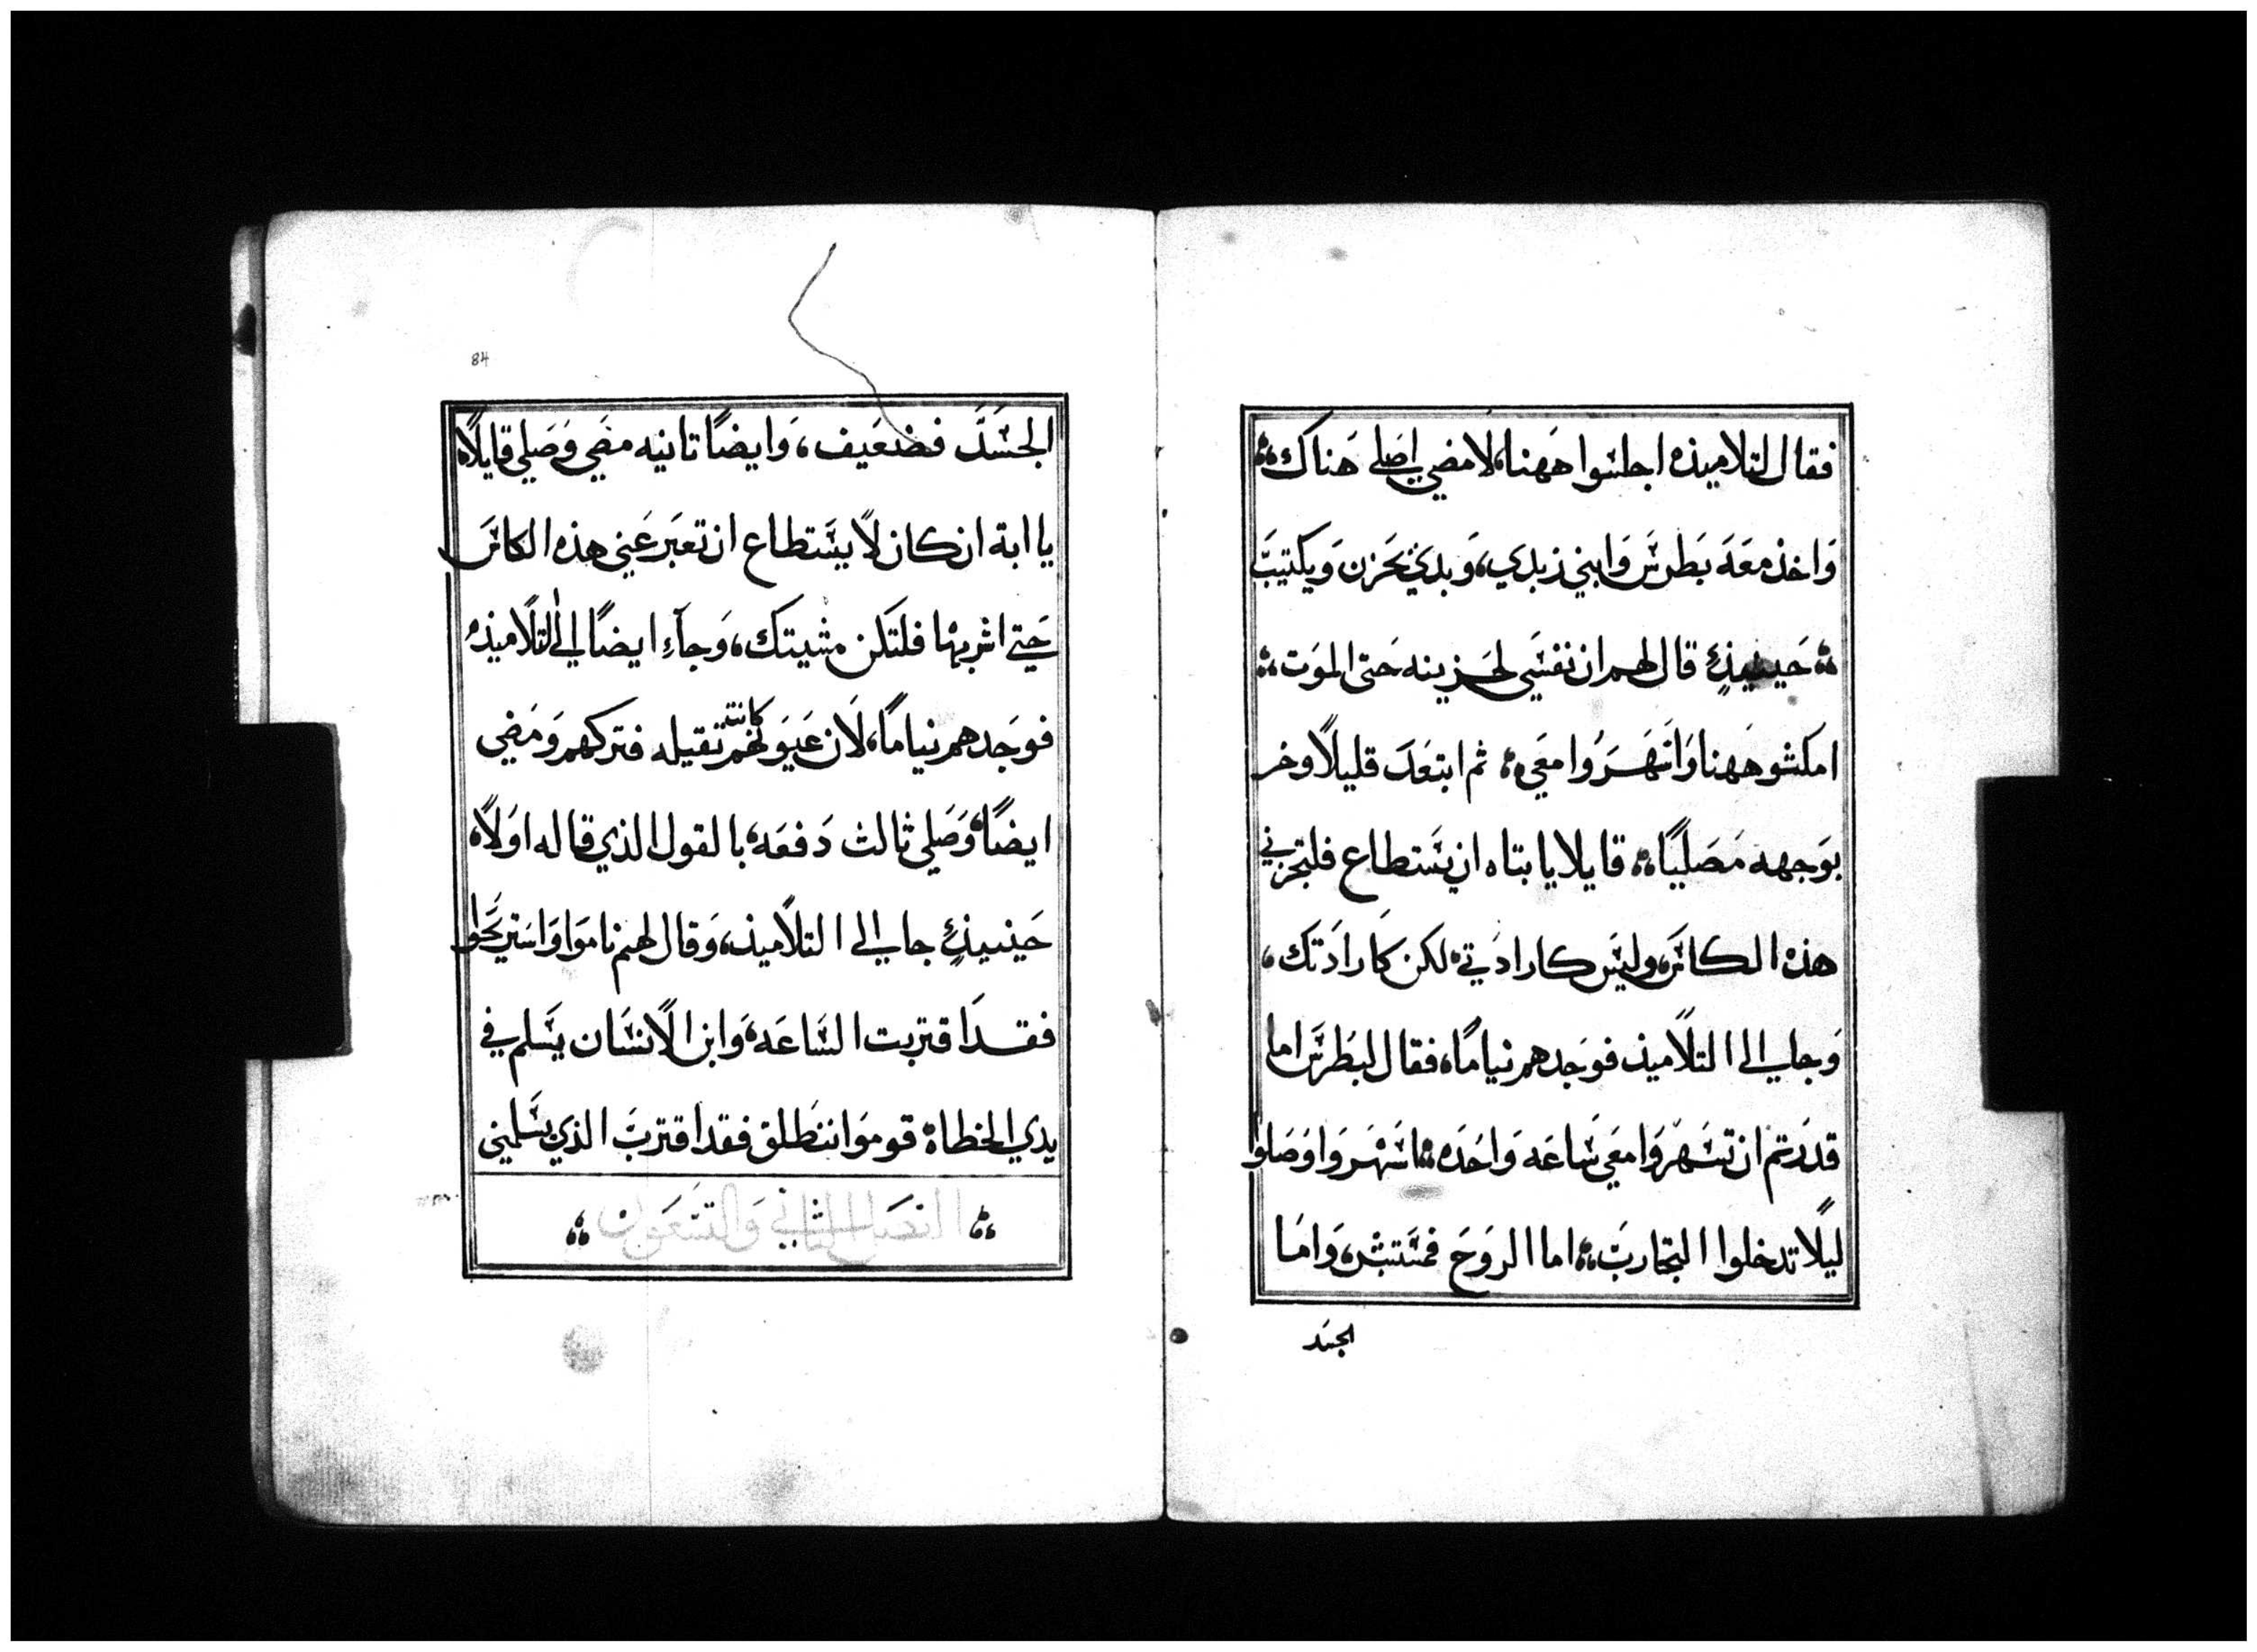 فقال لتلاميذه اجلسوا ههنا، لامضي اصلي هناك
وَاخذ معَه بَطرسَ وَابني زبدي، وَبدي يحَزن وَيكتيبَ
حَينيذٍ قال لهم ان نفسَي لحَزينه حَتى الموَت
امكثو هَهنا وَاسَهَروُا معَي ثم ابتعَدَ قليلًا وخر
بوَجهه مَصَليًا قايلا يا بتاه ان يسَتطاع فلتجزني
هذه الكاسَ، وليسَ كارادَتي، لكن كَارادَتك،
وَجا الي التلاميذ فوجَدهم نيامًا، فقال لبَطرسَ اما
قدرَتم ان تسَهرَوَا معَي سَاعَه وَاحَده اسَهَروَا وَصَلوا
ليلًا تدخلوا التجاربَ، اما الروَحَ فمسَتبشر، وَامَا
الجسد
84
الجسَدَ فضعَيف، وَايضًا ثانيه مضَي وَصَلي قايلًا
يا ابة ان كان لًا يسَتطاع ان تعَبَر عَني هذه الكاسَ
حَتي اشربها فلتَكن مشيتك، وَجآءِ ايضًا الي التلًاميذ
فوجَدهم نيامًا، لَان عَيَونهم كانت ثقيله فتركهم وَمَضي
ايضًا، وَصَلي ثالث دَفعَه، بالقول الذي قاله اوَلًا
حَينيذٍ جا الي التلًاميذ، وَقال لهم ناموَا وَاسَتريَحَوا
فقدَ اقتربت السَاعَه، وَابن الًانسَان يسَلم في
يدي الخطاة قوموَا ننطَلق فقد اقتربَ الذي يسَلمني
الفصَل الثاني وَالتسَعَون